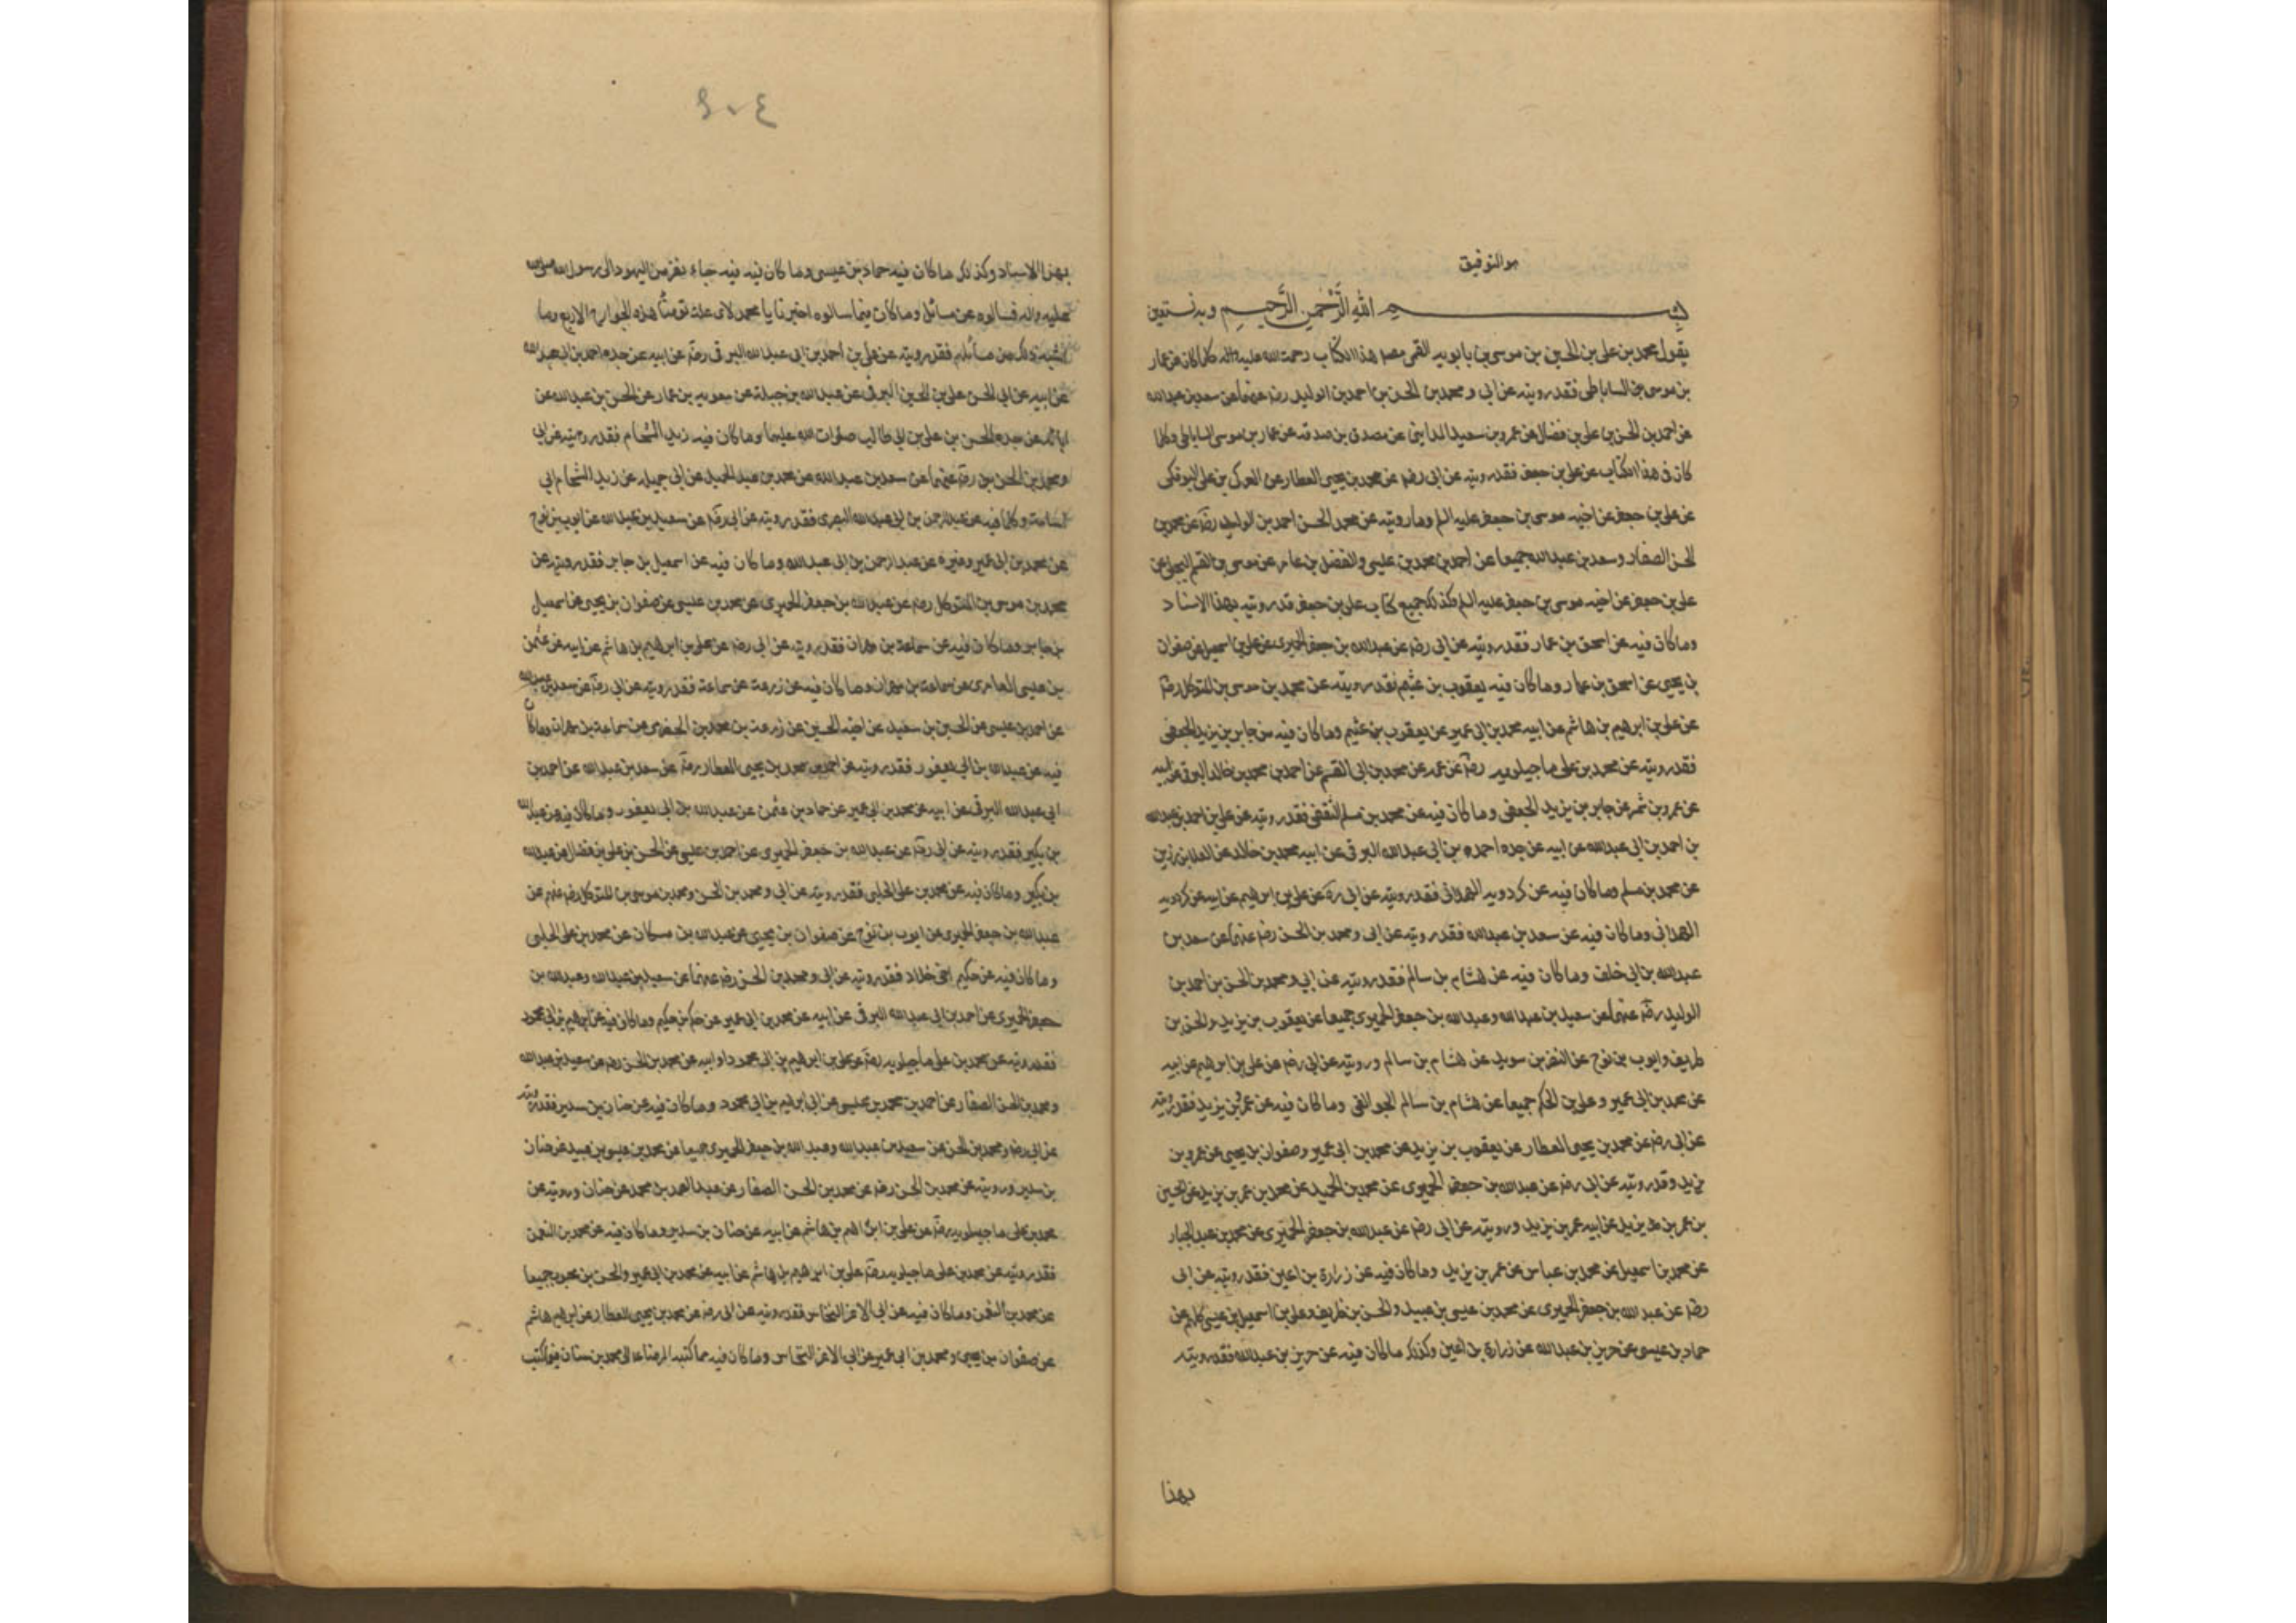 هو التوفيق
بسم الله الرحمن الرحيم وبه نستعين
يقول محمد بن علی بن الحسین بن موسی بن بابویه القمی مصنف هذا الکتاب رحمت الله علیه کلما کان عن عمار
بن موسی الساباطی فقد رویته عن ابی و محمد بن الحسن بن احمد بن الولید رضه عنهما عن سعد بن عبدالله
عن احمد بن الحسن بن علی بن فضال عن عمرو بن سعید المداینی عن مصدق بن صدقه عن عمار بن موسی الساباطی وکلما
کان فی هذا الکتاب عن علی بن جعفر فقد رویته عن ابی رضه عن محمد بن یحیی العطار عن العمرکی بن علی البوفکی
عن علی بن جعفر عن اخیه موسی بن جعفر علیه السلم وما رویته عن محمد الحسن احمد بن الولید رضه عن محمد بن
الحسن الصفار و سعد بن عبدالله جمیعا عن احمد بن محمد بن عیسی والفضل بن عامر عن موسی بن القسم البجلی عن
علی بن جعفر عن اخیه موسی بن جعفر علیه السلم وکذلک جمیع کتاب علی بن جعفر قد رویته بهذا الاسناد
وما کان فیه عن اسحق بن عمار فقد رویته عن ابی رضه عن عبدالله بن جعفر الحمیری عن علی بن اسمعیل عن صفوان
بن یحیی عن اسحق بن عمار وما کان فیه یعقوب بن عثیم فقد رویته عن محمد بن موسی بن المتوکل رضه
عن علی بن ابرهیم بن هاشم عن ابیه محمد بن ابی عمیر عن یعقوب بن عثیم وما کان فیه من جابر بن یزید الجعفی
فقد رویته عن محمد بن علی ماجیلویه رضه عن عمه عن محمد بن ابی القسم عن احمد بن محمد بن خالد البرقی عن ابیه
عن عمرو بن شمر عن جابر بن یزید الجعفی وما کان فیه عن محمد بن مسلم الثقفی فقد رویته عن علی بن احمد بن عبدالله
بن احمد بن ابی عبدالله عن ابیه عن جده احمد بن ابی عبدالله البرقی عن ابیه محمد بن خالد عن العلا بن رزین
عن محمد بن مسلم وما کان فیه عن کردویه الهمدانی فقد رویته عن ابی ره عن علی بن ابرهیم عن ابیه عن کردویه
الهمدانی وما کان فیه عن سعد بن عبدالله فقد رویته عن ابی و محمد بن الحسن رضه عنهما عن سعد بن
عبدالله بن ابی خلف وما کان فیه عن هشام بن سالم فقد رویته عن ابی و محمد بن الحسن بن احمد بن
الولید رضه عنهما عن سعید بن عبدالله و عبدالله بن جعفر الحمیری جمیعا عن یعقوب بن یزید والحسن بن
ظریف وایوب بن نوح عن النضر بن سوید عن هشام بن سالم ورویته عن ابی رضه عن علی بن ابرهیم عن ابیه
عن محمد بن ابی عمیر و علی بن الحکم جمیعا عن هشام بن سالم الجوالقی وما کان فیه عن عمر بن یزید فقد رویته
عن ابی رضه عن محمد بن یحیی العطار عن یعقوب بن یزید عن محمد بن ابی عمیر وصفوان بن یحیی عن عمرو بن
یزید وقد رویته عن ابی رضه عن عبدالله بن جعفر الحمیری عن محمد بن الحمید عن محمد بن عمر بن یزید عن الحسین
بن عمر بن یزید عن ابیه عمر بن یزید ورویته عن ابی رضه عن عبدالله بن جعفر الحمیری عن محمد بن عبدالجبار
عن محمد بن اسمعیل عن محمد بن عباس عن عمر بن یزید وما کان فیه عن زرارة بن اعین فقد رویته عن ابی
رضه عن عبد الله بن جعفر الحمیری عن محمد بن عیسی بن عبید والحسن بن ظریف وعلی بن اسمعیل بن عیسی کلهم عن
حماد بن عیسی عن حریز بن عبدالله عن زرارة بن اعین وکذلک ما کان فیه عن حریز بن عبدالله فقد رویته
بهذا
٤٠٤
بهذا الاسناد وکذلک ما کان فیه حماد بن عیسی وما کان فیه فیه جاء نفر من الیهود الی رسول الله صلی الله
علیه واله فسالوه عن مسائل وما کان فیما سالوه اخبرنا یا محمد لای علة توضا هذه الجوارح الاربع وما
اشبه ذلک من مسائلهم فقد رویته عن علی بن احمد بن ابی عبدالله البرقی رضه عن ابیه عن جده احمد بن ابی عبد الله
عن ابیه عن ابی الحسن علی بن الحسین البرقی عن عبدالله بن جبلة عن معویه بن عمار عن الحسن بن عبدالله عن
ابائه عن جده الحسن بن علی بن ابی طالب صلوات الله علیهما وما کان فیه زید الشحام فقد رویته عن ابی
ومحمد بن الحسن بن رضه عنهما عن سعد بن عبدالله عن محمد بن عبد الحمید عن ابی جمیله عن زید الشحام ابی
اسامة وکلما فیه عن عبدالرحمن بن ابی عبدالله البصری فقد رویته عن ابی رضه عن سعید بن عبدالله عن ایوب بن نوح
عن محمد بن ابی عمیر وغیره عن عبدالرحمن بن ابی عبدالله وما کان فیه عن اسمعیل بن جابر فقد رویته عن
محمد بن موسی بن المتوکل رضه عن عبدالله بن جعفر الحمیری عن محمد بن عیسی عن صفوان بن یحیی عن اسمعیل
بن جابر وما کان فیه عن سماعة بن مهران فقد رویته عن ابی رضه عن علی بن ابرهیم بن هاشم عن ابیه عن عثمن
بن عیسی العامری عن سماعة بن مهران وما کان فیه عن زرعة عن سماعة فقد رویته عن ابی رضه عن سعد بن عبدالله
عن احمد بن عیسی عن الحسین بن سعید عن اخیه الحسین عن زرعة بن محمد بن الحضرمی عن سماعة بن مهران وما کان
فیه عن عبدالله بن ابی یعفور فقد رویته عن احمد بن محمد بن یحیی العطار رضه عن سعد بن عبدالله عن احمد بن
ابی عبدالله البرقی عن ابیه عن محمد بن ابی عمیر عن حماد بن عثمن عن عبدالله بن ابی یعفور وما کان فیه عن عبدالله
بن بکیر فقد رویته عن ابی رضه عن عبدالله بن جعفر الحمیری عن احمد بن عیسی عن الحسن بن علی بن فضال عن عبدالله
بن بکیر وما کان فیه عن محمد بن علی الحلبی فقد رویته عن ابی و محمد بن الحسن ومحمد بن موسی بن المتوکل رضه عنهم عن
عبدالله بن جعفر الحمیری عن ایوب بن نوح عن صفوان بن یحیی عن عبدالله بن مسکان عن محمد بن علی الحلبی
وما کان فیه عن حکیم اخی خلاد فقد رویته عن ابی و محمد بن الحسن رضه عنهما عن سعید بن عبدالله وعبدالله بن
جعفر الحمیری عن احمد بن ابی عبدالله البرقی عن ابیه عن محمد بن ابی عمیر عن حکم بن حکیم وما کان فیه عن ابرهیم بن ابی محمود
فقد رویته عن محمد بن علی ماجیلویه رضه عن علی بن ابرهیم بن ابی محمود وابیه عن محمد بن الحسن رضه عن سعید بن عبدالله
ومحمد بن الحسن الصفار عن احمد بن محمد بن عیسی عن ابی ابرهیم بن ابی محمود وما کان فیه عن حنان بن سدیر فقد رویته
عن ابی رضه ومحمد بن الحسن عن سعید بن عبدالله وعبدالله بن جعفر الحمیری جمیعا عن محمد بن عیسی بن عبید عن حنان
بن سدیر ورویته عن محمد بن الحسن رضه عن محمد بن الحسن الصفار عن عبدالصمد بن محمد عن حنان ورویته عن
محمد بن علی ماجیلویه رضه عن علی بن ابراهیم بن هاشم عن ابیه عن حنان بن سدیر وما کان فیه عن محمد بن النعمن
فقد رویته عن محمد بن علی ماجیلویه رضه علی بن ابرهیم بن هاشم عن ابیه عن محمد بن ابی عمیر والحسن بن محبوب جمیعا
عن محمد بن النعمن وما کان فیه عن ابی الاعز النخاس فقد رویته عن ابی رضه عن محمد بن یحیی العطار عن ابرهیم هاشم
عن صفوان بن یحیی ومحمد بن ابی عمیر عن ابی الاعز النخاس وما کان فیه مما کتبه الرضا الی محمد بن سنان فیما کتب